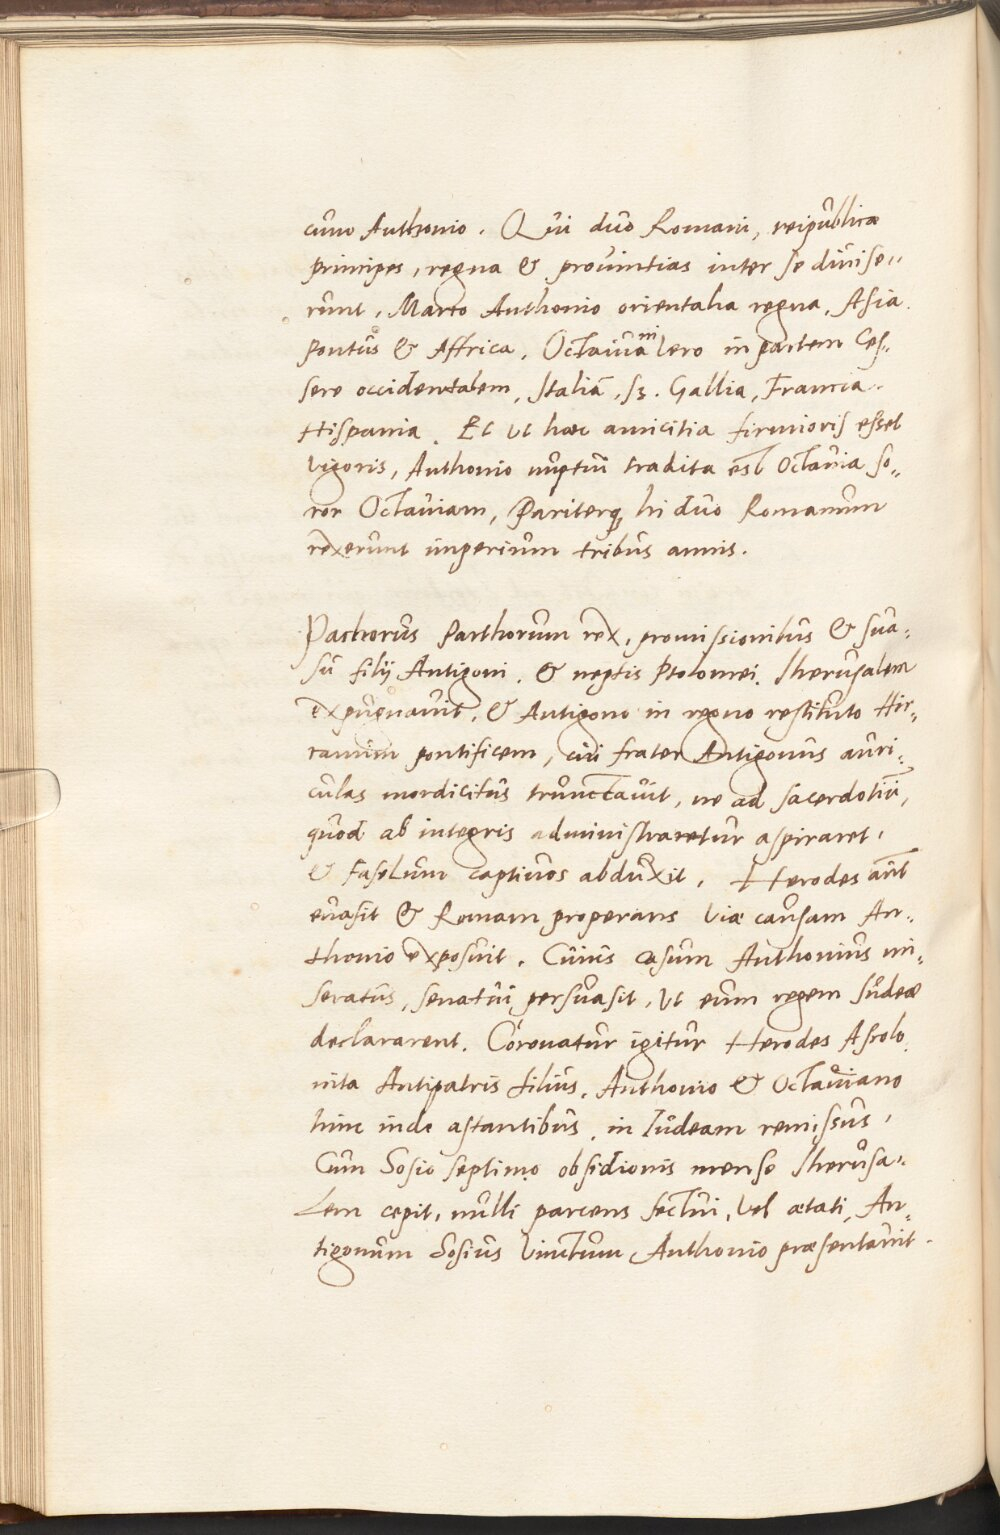 cum Anthonio. Qui duo Romani, reipublicæ
principes, regna & provintias inter se divise„
runt, Marco Anthonio orientalia regna, Asia
pontus & Affrica. Octaviano vero in partem Ces„
sere occidentalem, Italiā, sʒ. Gallia, Francia.
Hispania. Et ut hæc amicitia firmioris esset
vigoris, Anthonio nuptui tradita est Octavia so„
ror Octaviani, Pariterq hi duo Romanum
rexerunt imperium tribus annis.

Pachorus Parthorum rex, promissionibus & sua„
su filij Antigoni. & neptis Ptolomei. Iherusalem
expugnavit, & Antigono in regno restituto Hir„
canum pontificem, cui frater Antigonus auri„
culas mordicitus trunctavit, ne ad sacerdotiū,
quod ab integris administraretur aspiraret,
& Faselum captivos abduxit. Herodes aūt
evasit & Romam properans viæ causam An„
thonio exposuit. Cuius casum Anthonius mi„
seratus, senatui persuasit, ut eum regem Iudeæ
declararent. Coronatur igitur Herodes Ascolo„
nita Antipatris filius, Anthonio & Octaviano
hinc inde astantibus, in Iudeam remissus,
Cum Sosio septimo obsidionis mense Iherusa„
lem cepit, nulli parcens sectui, vel ætati, An„
tigonum Sosius vinctum Anthonio præsentavit.